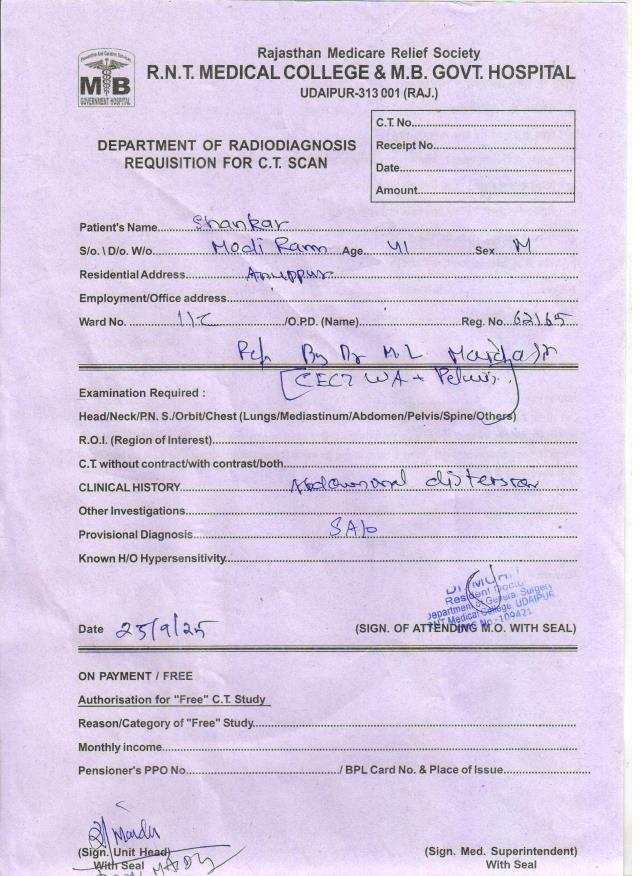 Preventive And Curative Services
MB
GOVERNMENT HOSPITAL
Rajasthan Medicare Relief Society
R.N.T. MEDICAL COLLEGE & M.B. GOVT. HOSPITAL
UDAIPUR-313 001 (RAJ.)
DEPARTMENT OF RADIODIAGNOSIS
REQUISITION FOR C.T. SCAN
C.T. No.
Receipt No.
Date
Amount
Patient's Name Shankar
S/o. \ D/o. W/o Modi Ram Age 41 Sex M
Residential Address Anuppur
Employment/Office address
Ward No. 11C /O.P.D. (Name) Reg. No. 62165
By Dr M.L
CECT WA + Pelvis
Examination Required :
Head/Neck/P.N. S./Orbit/Chest (Lungs/Mediastinum/Abdomen/Pelvis/Spine/Others)
R.O.I. (Region of Interest)
C.T. without contract/with contrast/both
CLINICAL HISTORY Abdominal distension
Other Investigations
Provisional Diagnosis SAIO
Known H/O Hypersensitivity
Resident Doctor
Department of General Surgery
RNT Medical College, UDAIPUR
Date 23/9/25 (SIGN. OF ATTENDING M.O. WITH SEAL)
ON PAYMENT / FREE
Authorisation for "Free" C.T. Study
Reason/Category of "Free" Study
Monthly income
Pensioner's PPO No. / BPL Card No. & Place of Issue
(Sign. Unit Head) (Sign. Med. Superintendent)
With Seal With Seal